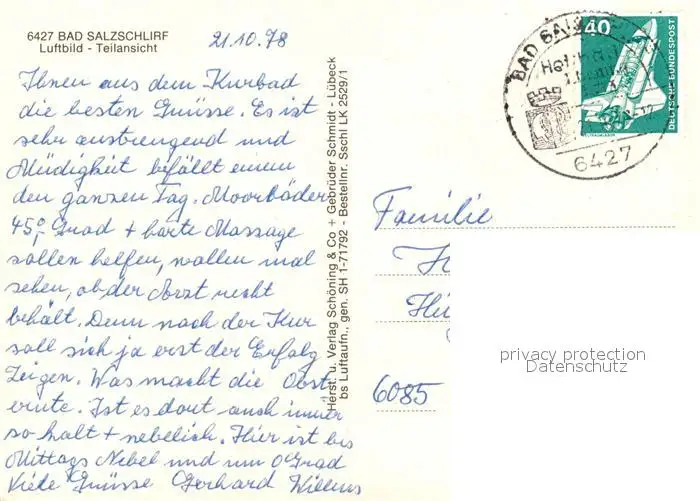 6427 BAD SALZSCHLIRF
Luftbild - Teilansicht
21.10.78
Ihnen aus dem Kurbad
die besten Grüsse. Es ist
sehr anstrengend und
Müdigkeit befällt einem
den ganzen Tag. Moorbäder
45,° Grad + harte Massage
sollen helfen, wollen mal
sehen, ob der Arzt recht
behält. Denn nach der Kur
soll sich ja erst der Erfolg
Zeigen. Was macht die Obst
ernte. Ist es dort auch immer
so kalt + nebelich. Hier ist bis
Mittags Nebel und um 0 Grad
Viele Grüsse Gerhard Willems
Herst. u. Verlag Schöning & Co + Gebrüder Schmidt - Lübeck
bs Luftaufn., gen. SH 1-71792 - Bestellnr. Sschl LK 2529/1
40
DEUTSCHE BUNDESPOST
BAD SALZ
6427
Familie
6085
privacy protection
Datenschutz